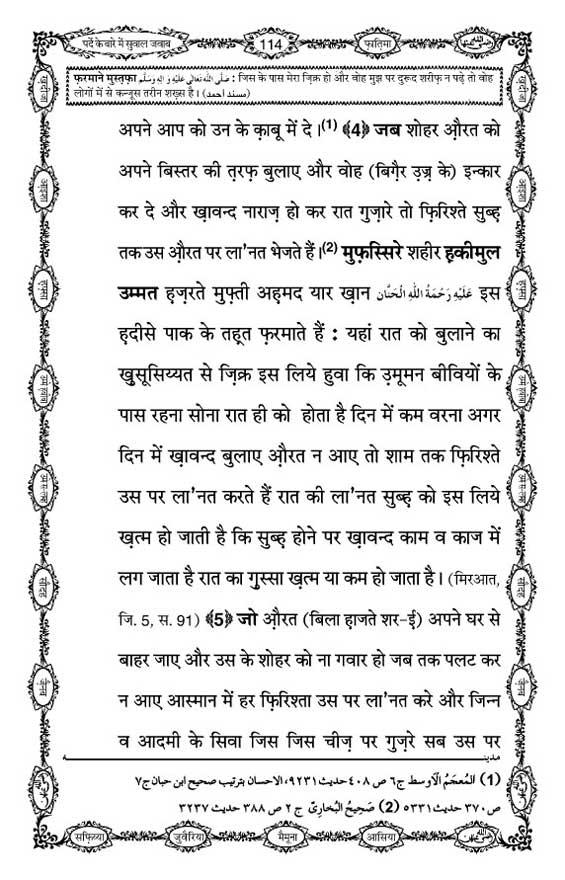 पर्दे के बारे में सुवाल जवाब
114
फ़ातिमा
फ़रमाने मुस्तफ़ा صَلَّى اللّٰهُ تَعَالٰى عَلَيْهِ وَاٰلِهٖ وَسَلَّم : जिस के पास मेरा ज़िक्र हो और वोह मुझ पर दुरूद शरीफ़ न पढ़े तो वोह
लोगों में से कन्जूस तरीन शख़्स है। (مسند احمد)
अपने आप को उन के क़ाबू में दे।(1) ﴾4﴿ जब शोहर औ़रत को
अपने बिस्तर की त़रफ़ बुलाए और वोह (बिग़ैर उ़ज़्र के) इन्कार
कर दे और ख़ावन्द नाराज़ हो कर रात गुज़ारे तो फ़िरिश्ते सुब्ह़
तक उस औ़रत पर ला'नत भेजते हैं।(2) मुफ़स्सिरे शहीर ह़कीमुल
उम्मत ह़ज़रते मुफ़्ती अह़मद यार ख़ान عَلَيْهِ رَحْمَةُ اللّٰهِ الْحَنَّان इस
ह़दीसे पाक के तह़्त फ़रमाते हैं : यहां रात को बुलाने का
ख़ुसूसिय्यत से ज़िक्र इस लिये हुवा कि उ़मूमन बीवियों के
पास रहना सोना रात ही को होता है दिन में कम वरना अगर
दिन में ख़ावन्द बुलाए औ़रत न आए तो शाम तक फ़िरिश्ते
उस पर ला'नत करते हैं रात की ला'नत सुब्ह़ को इस लिये
ख़त्म हो जाती है कि सुब्ह़ होने पर ख़ावन्द काम व काज में
लग जाता है रात का ग़ुस्सा ख़त्म या कम हो जाता है। (मिरआत,
जि. 5, स. 91) ﴾5﴿ जो औ़रत (बिला ह़ाजते शर-ई़) अपने घर से
बाहर जाए और उस के शोहर को ना गवार हो जब तक पलट कर
न आए आस्मान में हर फ़िरिश्ता उस पर ला'नत करे और जिन्न
व आदमी के सिवा जिस जिस चीज़ पर गुज़रे सब उस पर
مدینہ
(1) اَلْمُعْجَمُ الْاَوسط ج٦ ص ٤٠٨ حدیث ٩٢٣١، الاحسان بترتیب صحیح ابن حبان ج٧
ص ٣٧٠ حدیث ٥٣٣١ (2) صَحِیحُ الْبُخارِیّ ج ٢ ص ٣٨٨ حدیث ٣٢٣٧
सफ़िय्या
जुवैरिया
मैमूना
आसिया